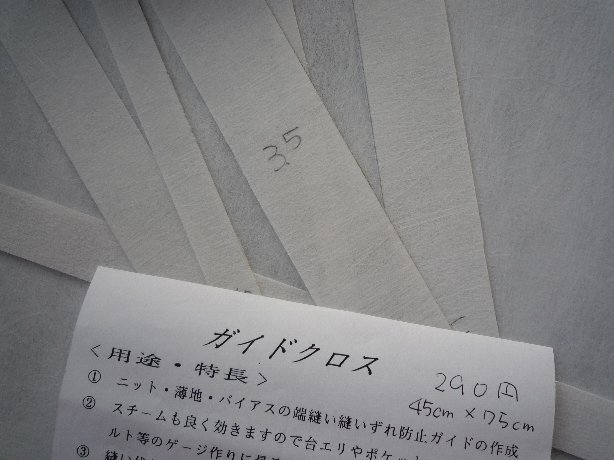 3.5
ガイドクロス
290円
45cm×75cm
<用途・特長>
① ニット・薄地・バイアスの端縫い縫いずれ防止ガイドの作成
② スチームも良く効きますので台エリやポケット
ルト等のゲージ作りに
③ 縫い